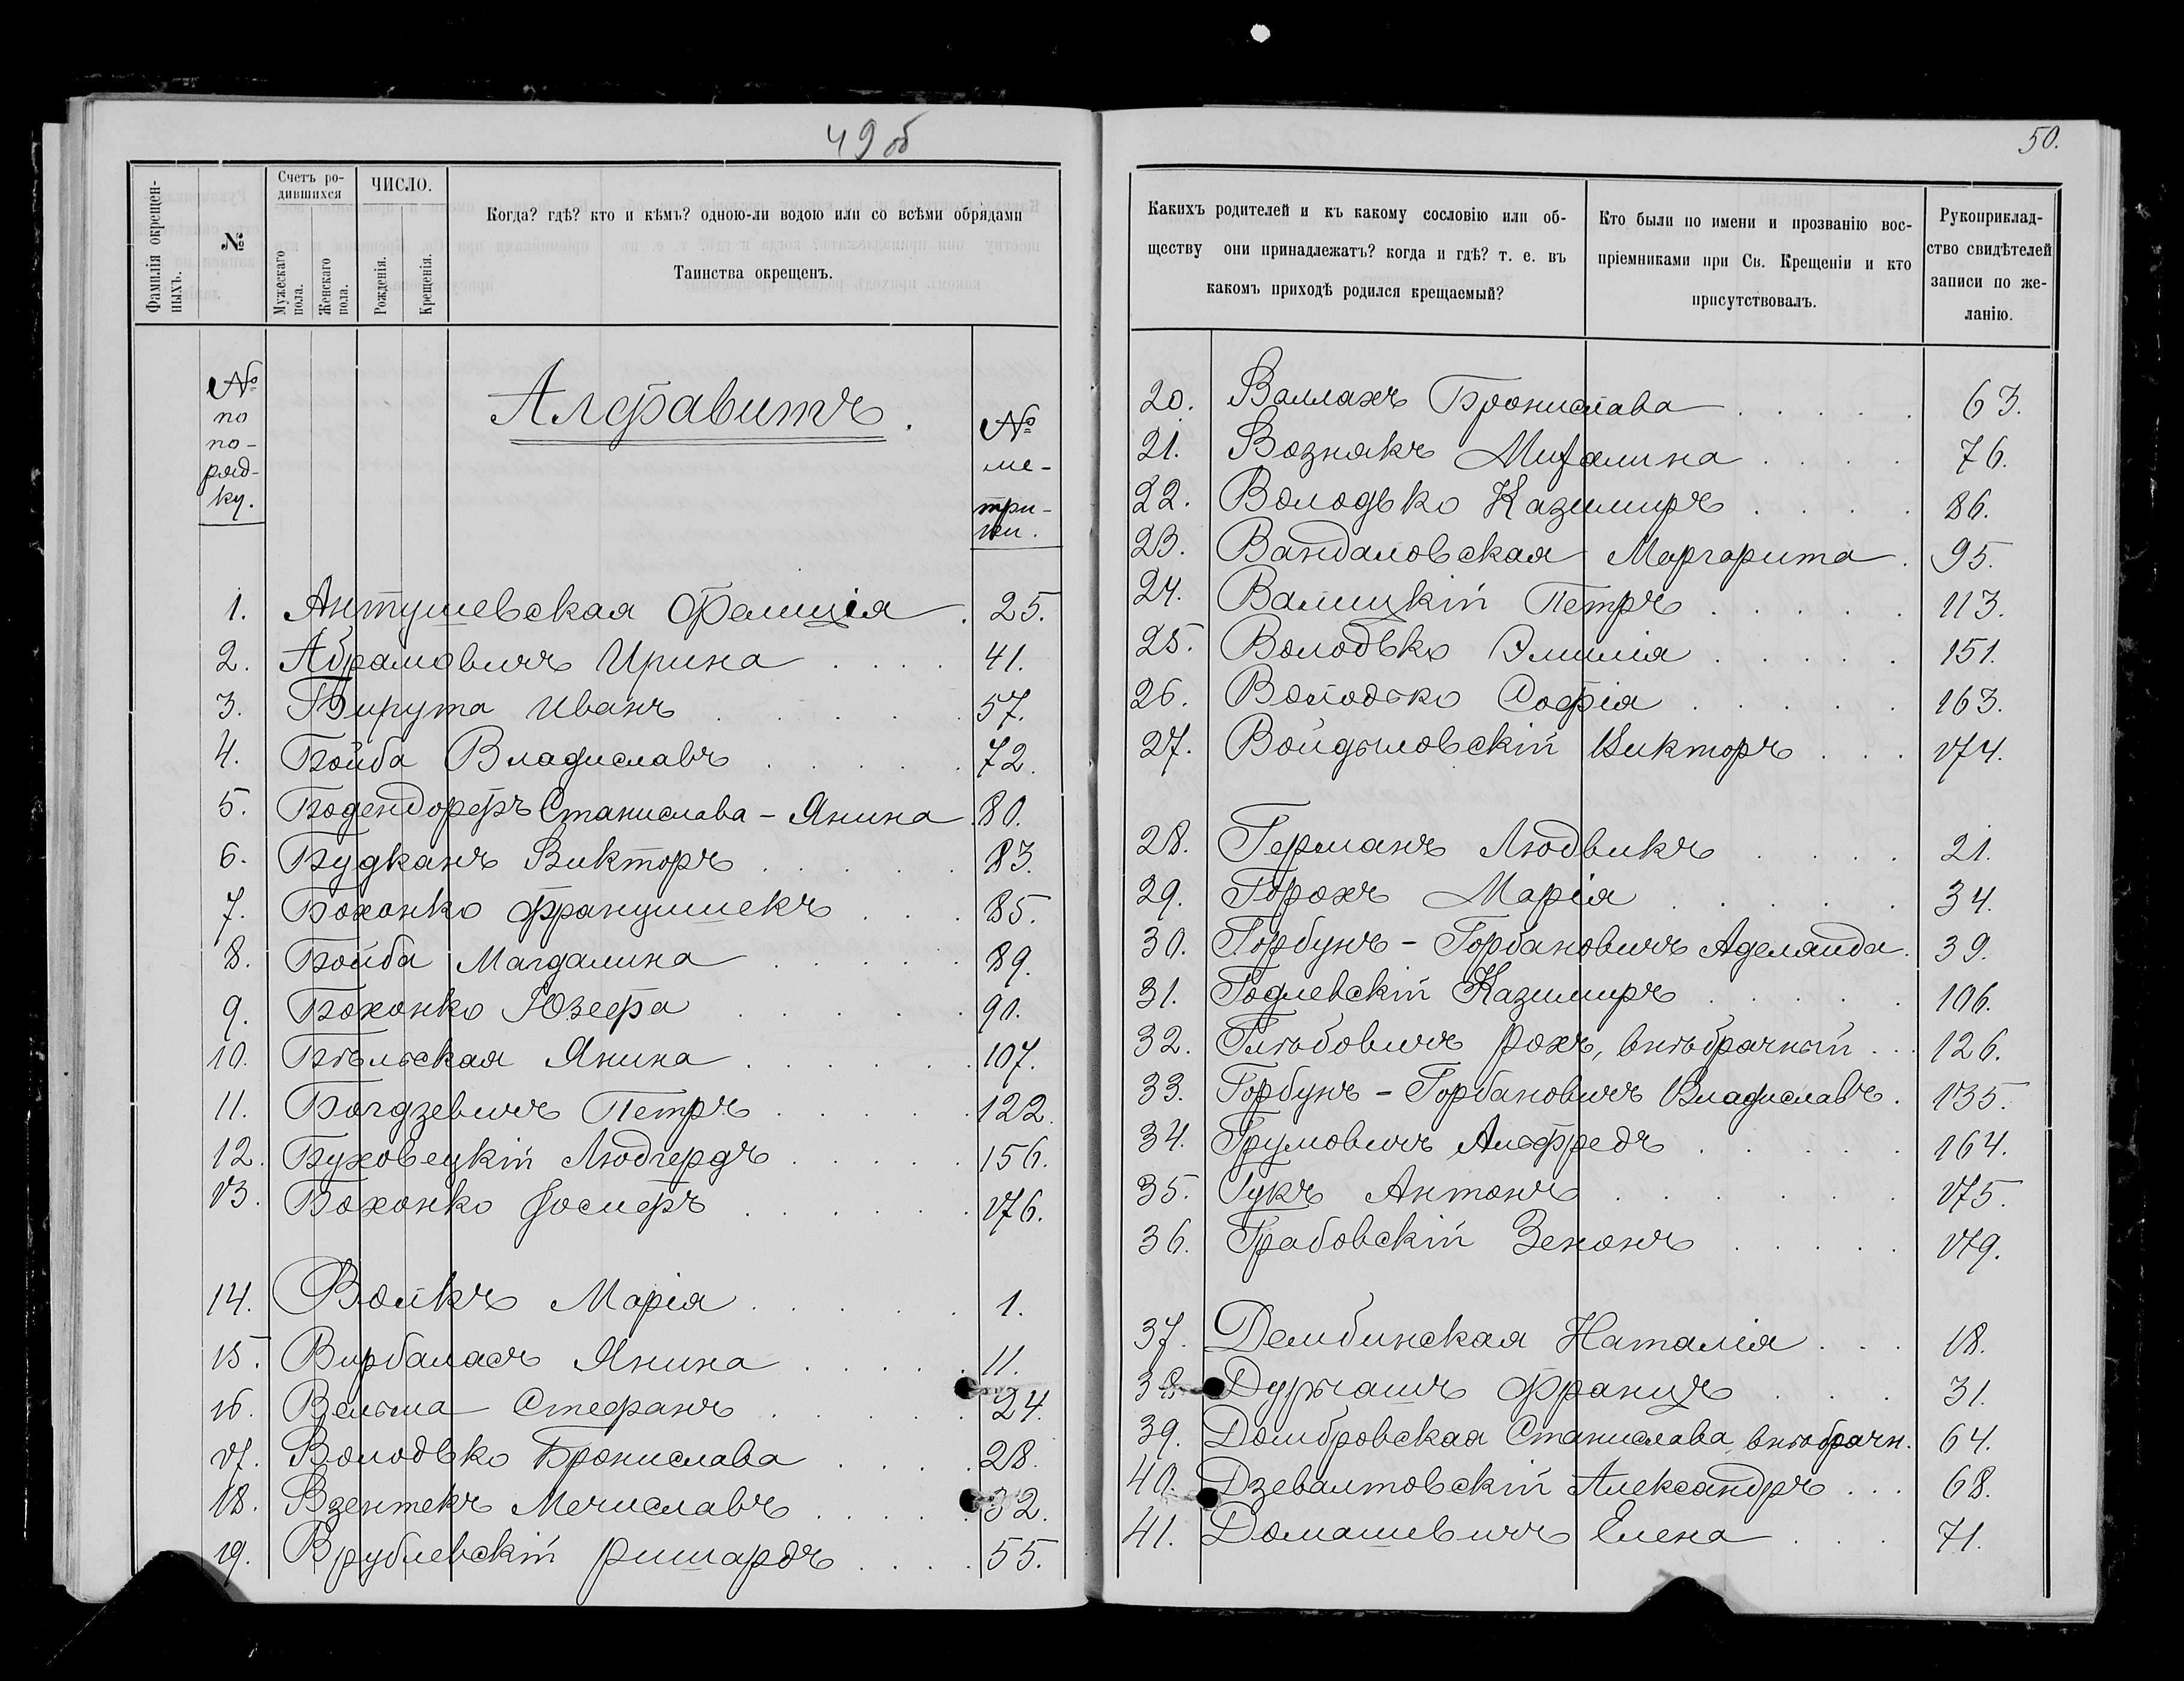 49 об
Фамилія окрещен-
ныхъ.
№
Счетъ ро-
дившихся
Мужескаго
пола.
Женскаго
пола.
ЧИСЛО.
Рожденія.
Крещенія.
Когда? гдѣ? кто и кѣмъ? одною-ли водою или со всѣми обрядами
Таинства окрещенъ.
№
по
по-
ряд-
ку.
Алфавитъ.
№
ме-
три-
ки.
1. Антушевская Фелиція . 25.
2. Абрамовичъ Ирина . . . . 41.
3. Бирута Иванъ . . . . . 57.
4. Бойба Владиславъ . . . . . 72.
5. Бодендорфъ Станислава-Янина . 80.
6. Будканъ Викторъ . . . . . 83.
7. Бохонко Францишекъ . . . 85.
8. Бойба Магдалина . . . . . 89.
9. Бохонко Юзефа . . . . . 90.
10. Бѣльская Янина . . . . . . 107.
11. Богдзевичъ Петръ . . . . . 122.
12. Буховецкій Людгердъ . . . . . 156.
13. Бохонко Іосифъ . . . . . . 176.
14. Волкъ Марія . . . . . 1.
15. Вирбаласъ Янина . . . . . 11.
16. Вельма Стефанъ . . . . . 24.
17. Володько Бронислава . . . . 28.
18. Взентекъ Мечиславъ . . . . . 32.
19. Врублевскій Ришардъ . . . . 55.
50.
Какихъ родителей и къ какому сословію или об-
ществу они принадлежатъ? когда и гдѣ? т. е. въ
какомъ приходѣ родился крещаемый?
Кто были по имени и прозванію вос-
пріемниками при Св. Крещеніи и кто
присутствовалъ.
Рукоприклад-
ство свидѣтелей
записи по же-
ланію.
20. Валлахъ Бронислава . . . . . 63.
21. Вознякъ Михалина . . . . 76.
22. Володько Казимиръ . . . . 86.
23. Вандаловская Маргарита . 95.
24. Валицкій Петръ . . . . . 113.
25. Володько Эмилія . . . . . 151.
26. Володько Софія . . . . . 163.
27. Войдыловскій Викторъ . . . 174.
28. Германъ Людвикъ . . . . 21.
29. Горохъ Марія . . . . . 34.
30. Горбунъ-Горбановичъ Аделяида . 39.
31. Годлевскій Казимиръ . . . . . 106.
32. Глѣбовичъ Рохъ, внѣбрачный . . . 126.
33. Горбунъ-Горбановичъ Владиславъ . 135.
34. Грумовичъ Альфредъ . . . . . 164.
35. Гукъ Антонъ . . . . . . 175.
36. Грабовскій Зенонъ . . . . . 179.
37. Дембинская Наталія . . . 18.
38. Дургашъ Францъ . . . 31.
39. Домбровская Станислава, внѣбрачн. 64.
40. Дзевалтовскій Александръ . . . 68.
41. Домашевичъ Елена . . . 71.